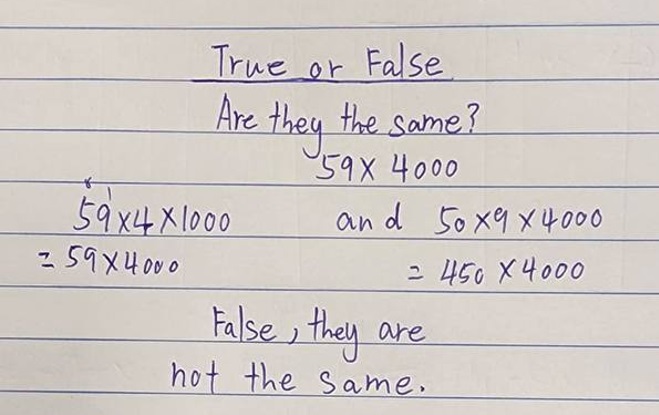 True or False
Are they the same?
59 × 4000
59 × 4 × 1000 and 50 × 9 × 4000
= 59 × 4000 = 450 × 4000
False, they are
not the same.